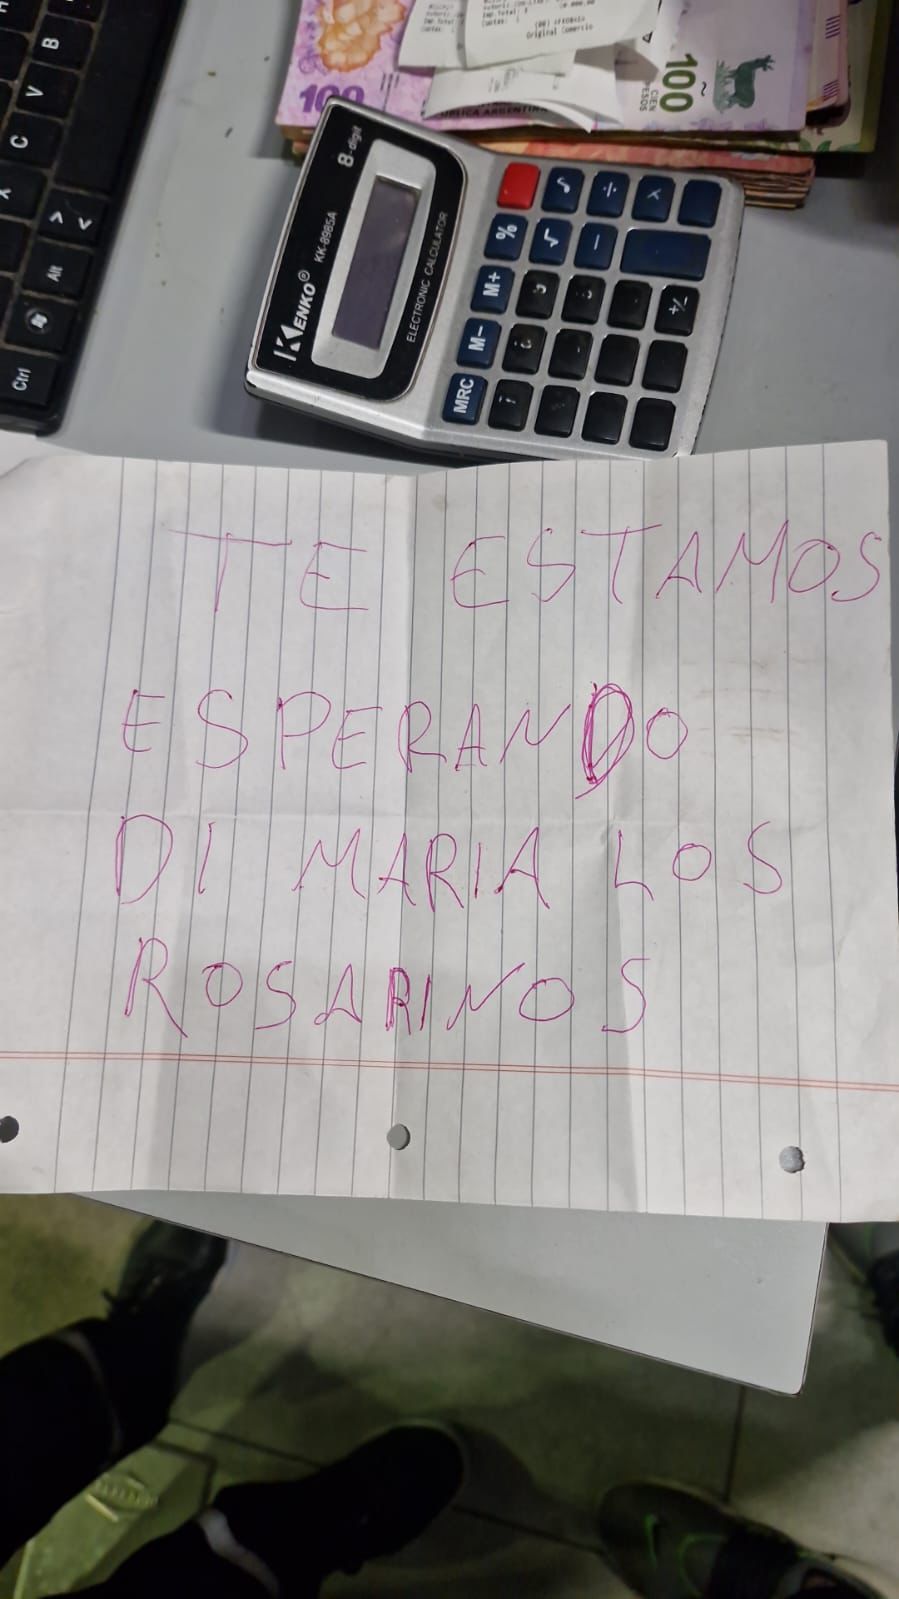 B
V
C
X
> <
Alt
Ctrl
100
Original Comercio
REPÚBLICA ARGENTINA
100
CIEN
PESOS
8-digit
KENKO®
KK-8985A
ELECTRONIC CALCULATOR
%
√
÷
×
M+
−
M-
MRC
+/-
TE ESTAMOS
ESPERANDO
DI MARIA LOS
ROSARINOS